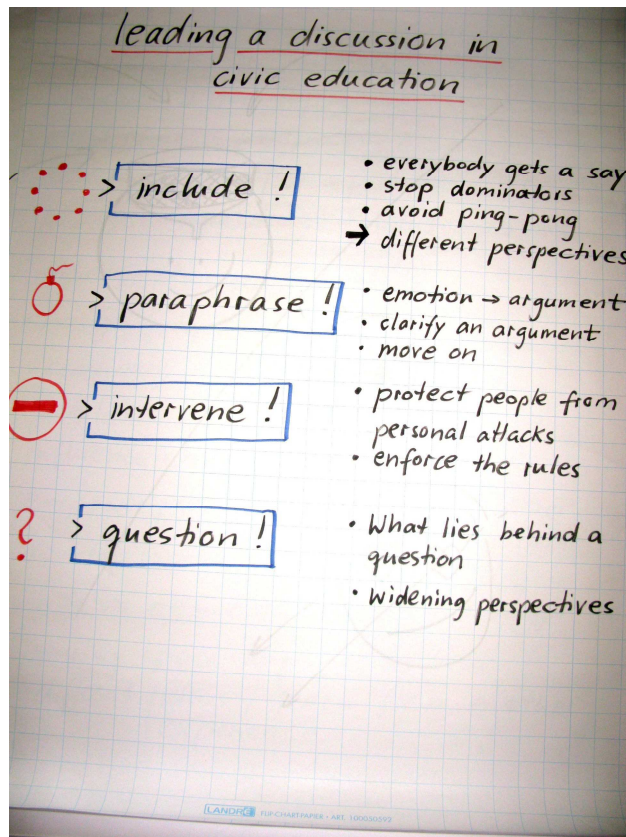 leading a discussion in
civic education
> include !
• everybody gets a say
• stop dominators
• avoid ping-pong
→ different perspectives
> paraphrase !
• emotion → argument
• clarify an argument
• move on
> intervene !
• protect people from
personal attacks
• enforce the rules
?
> question !
• What lies behind a
question
• widening perspectives
LANDRÉ FLIPCHARTPAPIER • ART. 100050592